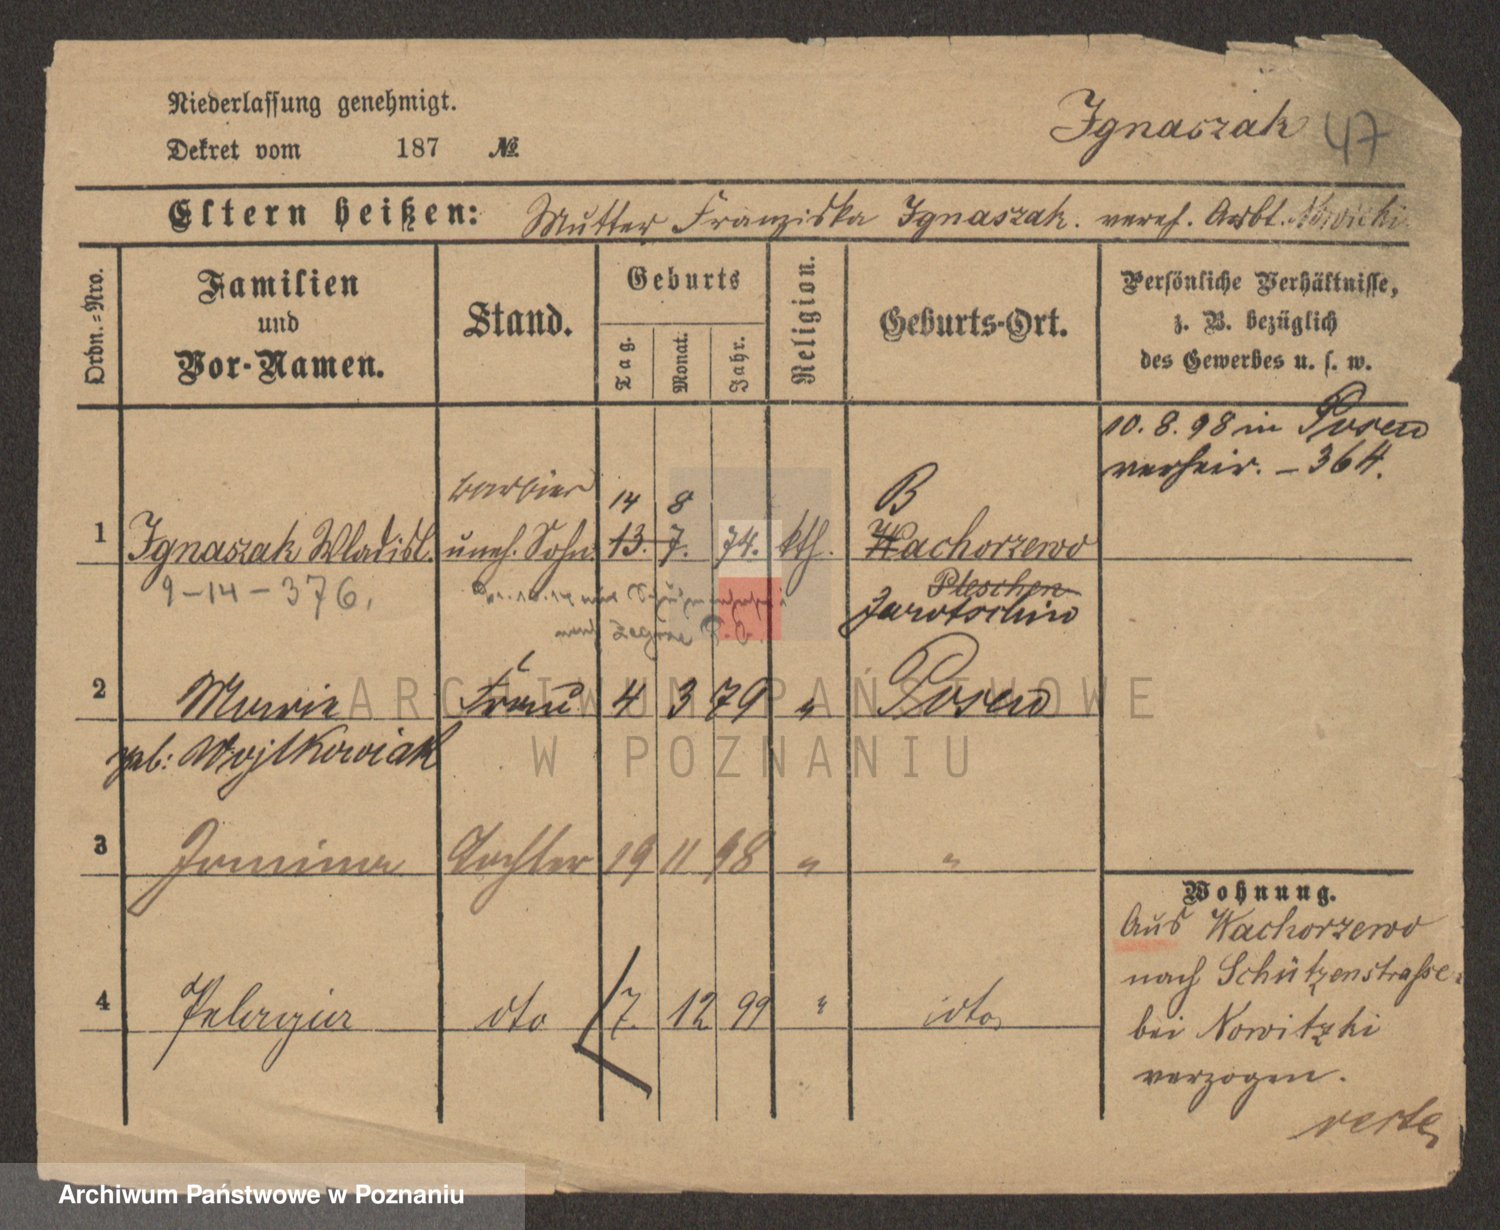 Niederlassung genehmigt.
Dekret vom 187 №
Ignaszak 47
Eltern heißen: Mutter Franziska Ignaszak. vereh. Arbt. Nowicki
Ordn.-Nro.
Familien und Vor-Namen.
Stand.
Geburts
Tag. Monat. Jahr.
Religion.
Geburts-Ort.
Persönliche Verhältnisse,
z. B. bezüglich
des Gewerbes u. s. w.
10. 8. 98 in Posen
verheir. – 364.
barbier 14 8 B
1 Ignaszak Wladisl. uneh. Sohn. 13. 7. 74. kth. Wachorzewo
9-14-376. Pleschen
Jarotschin
2 Marie Frau 4 3 79 " Posen
geb: Wojtkowiak
3 Janina Tochter 19 11 98 " "
4 Pelagia dto 7. 12 99 " dto
Wohnung.
Aus Wachorzewo
nach Schützenstraße
bei Nowitzki
verzogen.
verte
ARCHIWUM PAŃSTWOWE
W POZNANIU
Archiwum Państwowe w Poznaniu